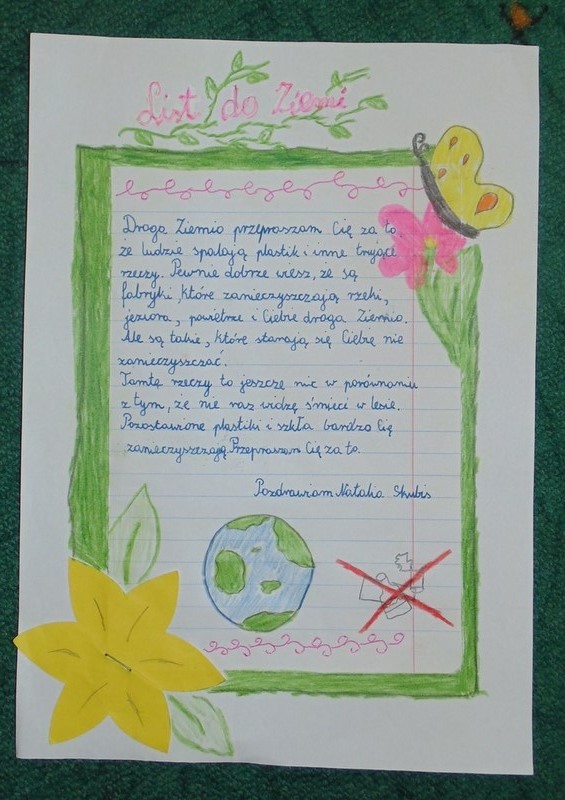 List do Ziemi
Droga Ziemio przepraszam Cię za to,
że ludzie spalają plastik i inne trujące
rzeczy. Pewnie dobrze wiesz, że są
fabryki, które zanieczyszczają rzeki,
jeziora, powietrze i Ciebie droga Ziemio.
Ale są takie, które starają się Ciebie nie
zanieczyszczać.
Tamte rzeczy to jeszcze nic w porównaniu
z tym, że nie raz widzę śmieci w lesie.
Pozostawione plastiki i szkła bardzo Cię
zanieczyszczają. Przepraszam Cię za to.
Pozdrawiam Natalia Skubis